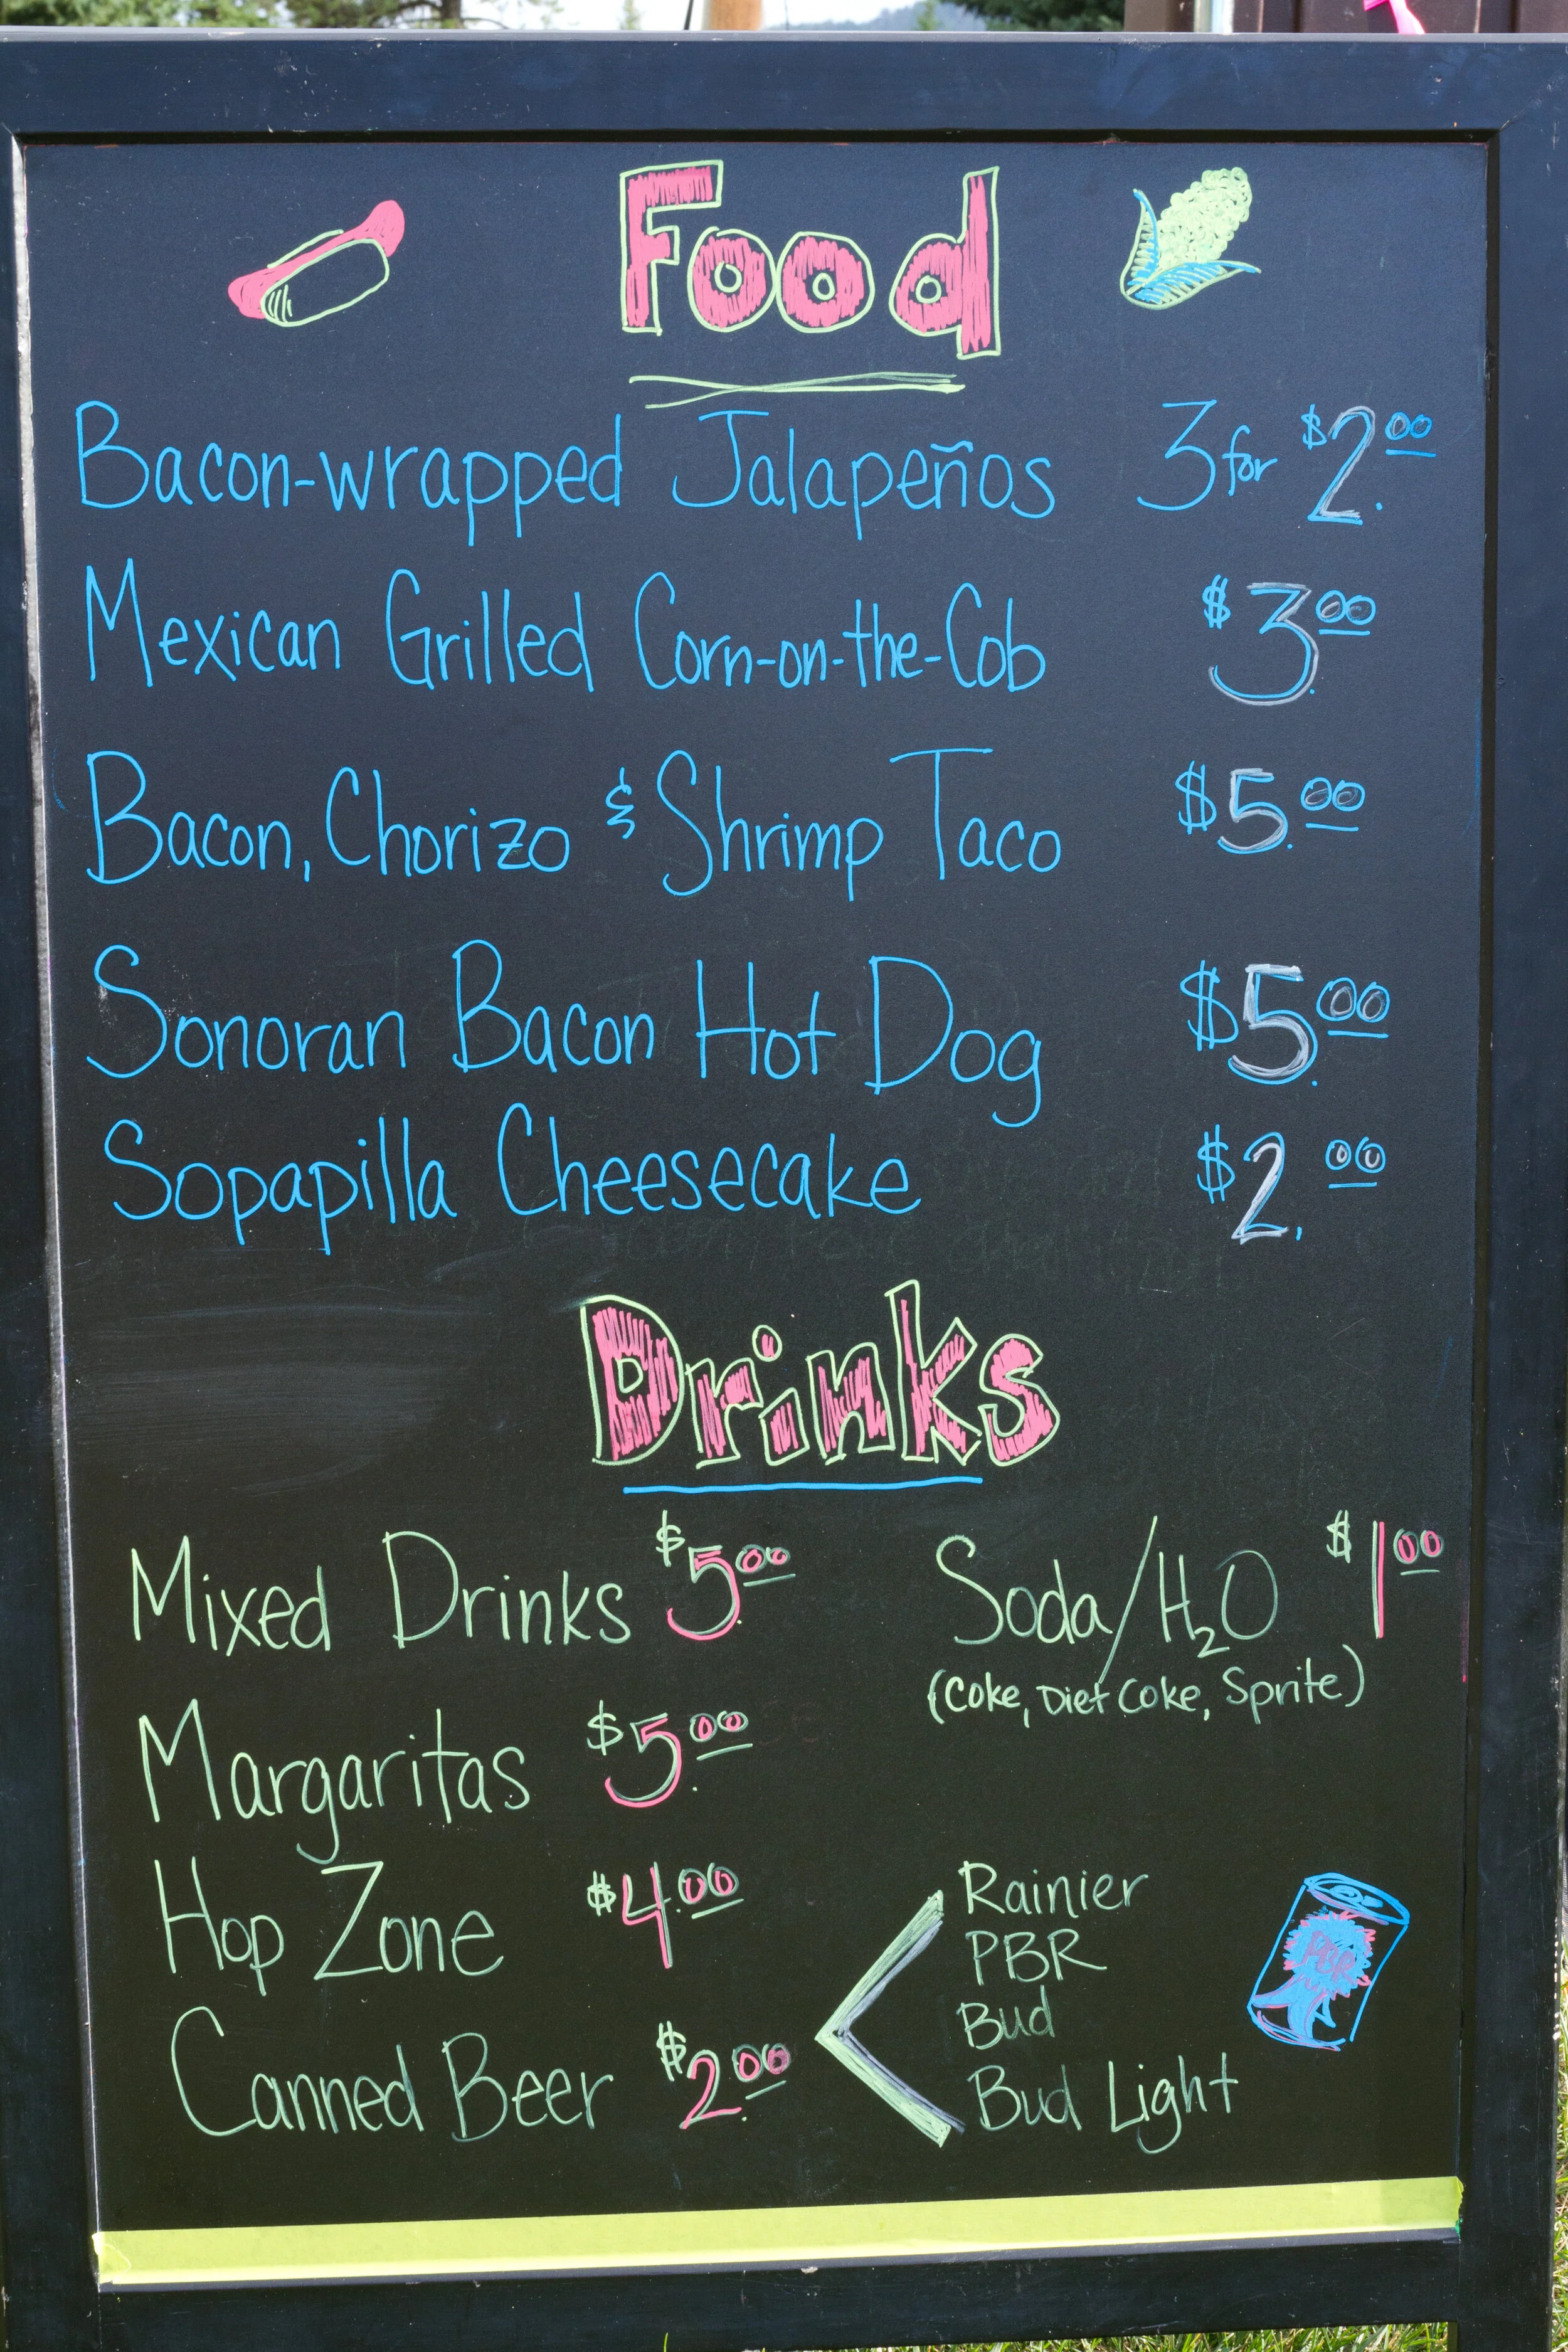 Food
Bacon-wrapped Jalapeños 3 for $2.00
Mexican Grilled Corn-on-the-Cob $3.00
Bacon, Chorizo & Shrimp Taco $5.00
Sonoran Bacon Hot Dog $5.00
Sopapilla Cheesecake $2.00
Drinks
Mixed Drinks $5.00
Soda/H₂O $1.00
(Coke, Diet Coke, Sprite)
Margaritas $5.00
Hop Zone $4.00
Canned Beer $2.00
Rainier
PBR
Bud
Bud Light
PBR